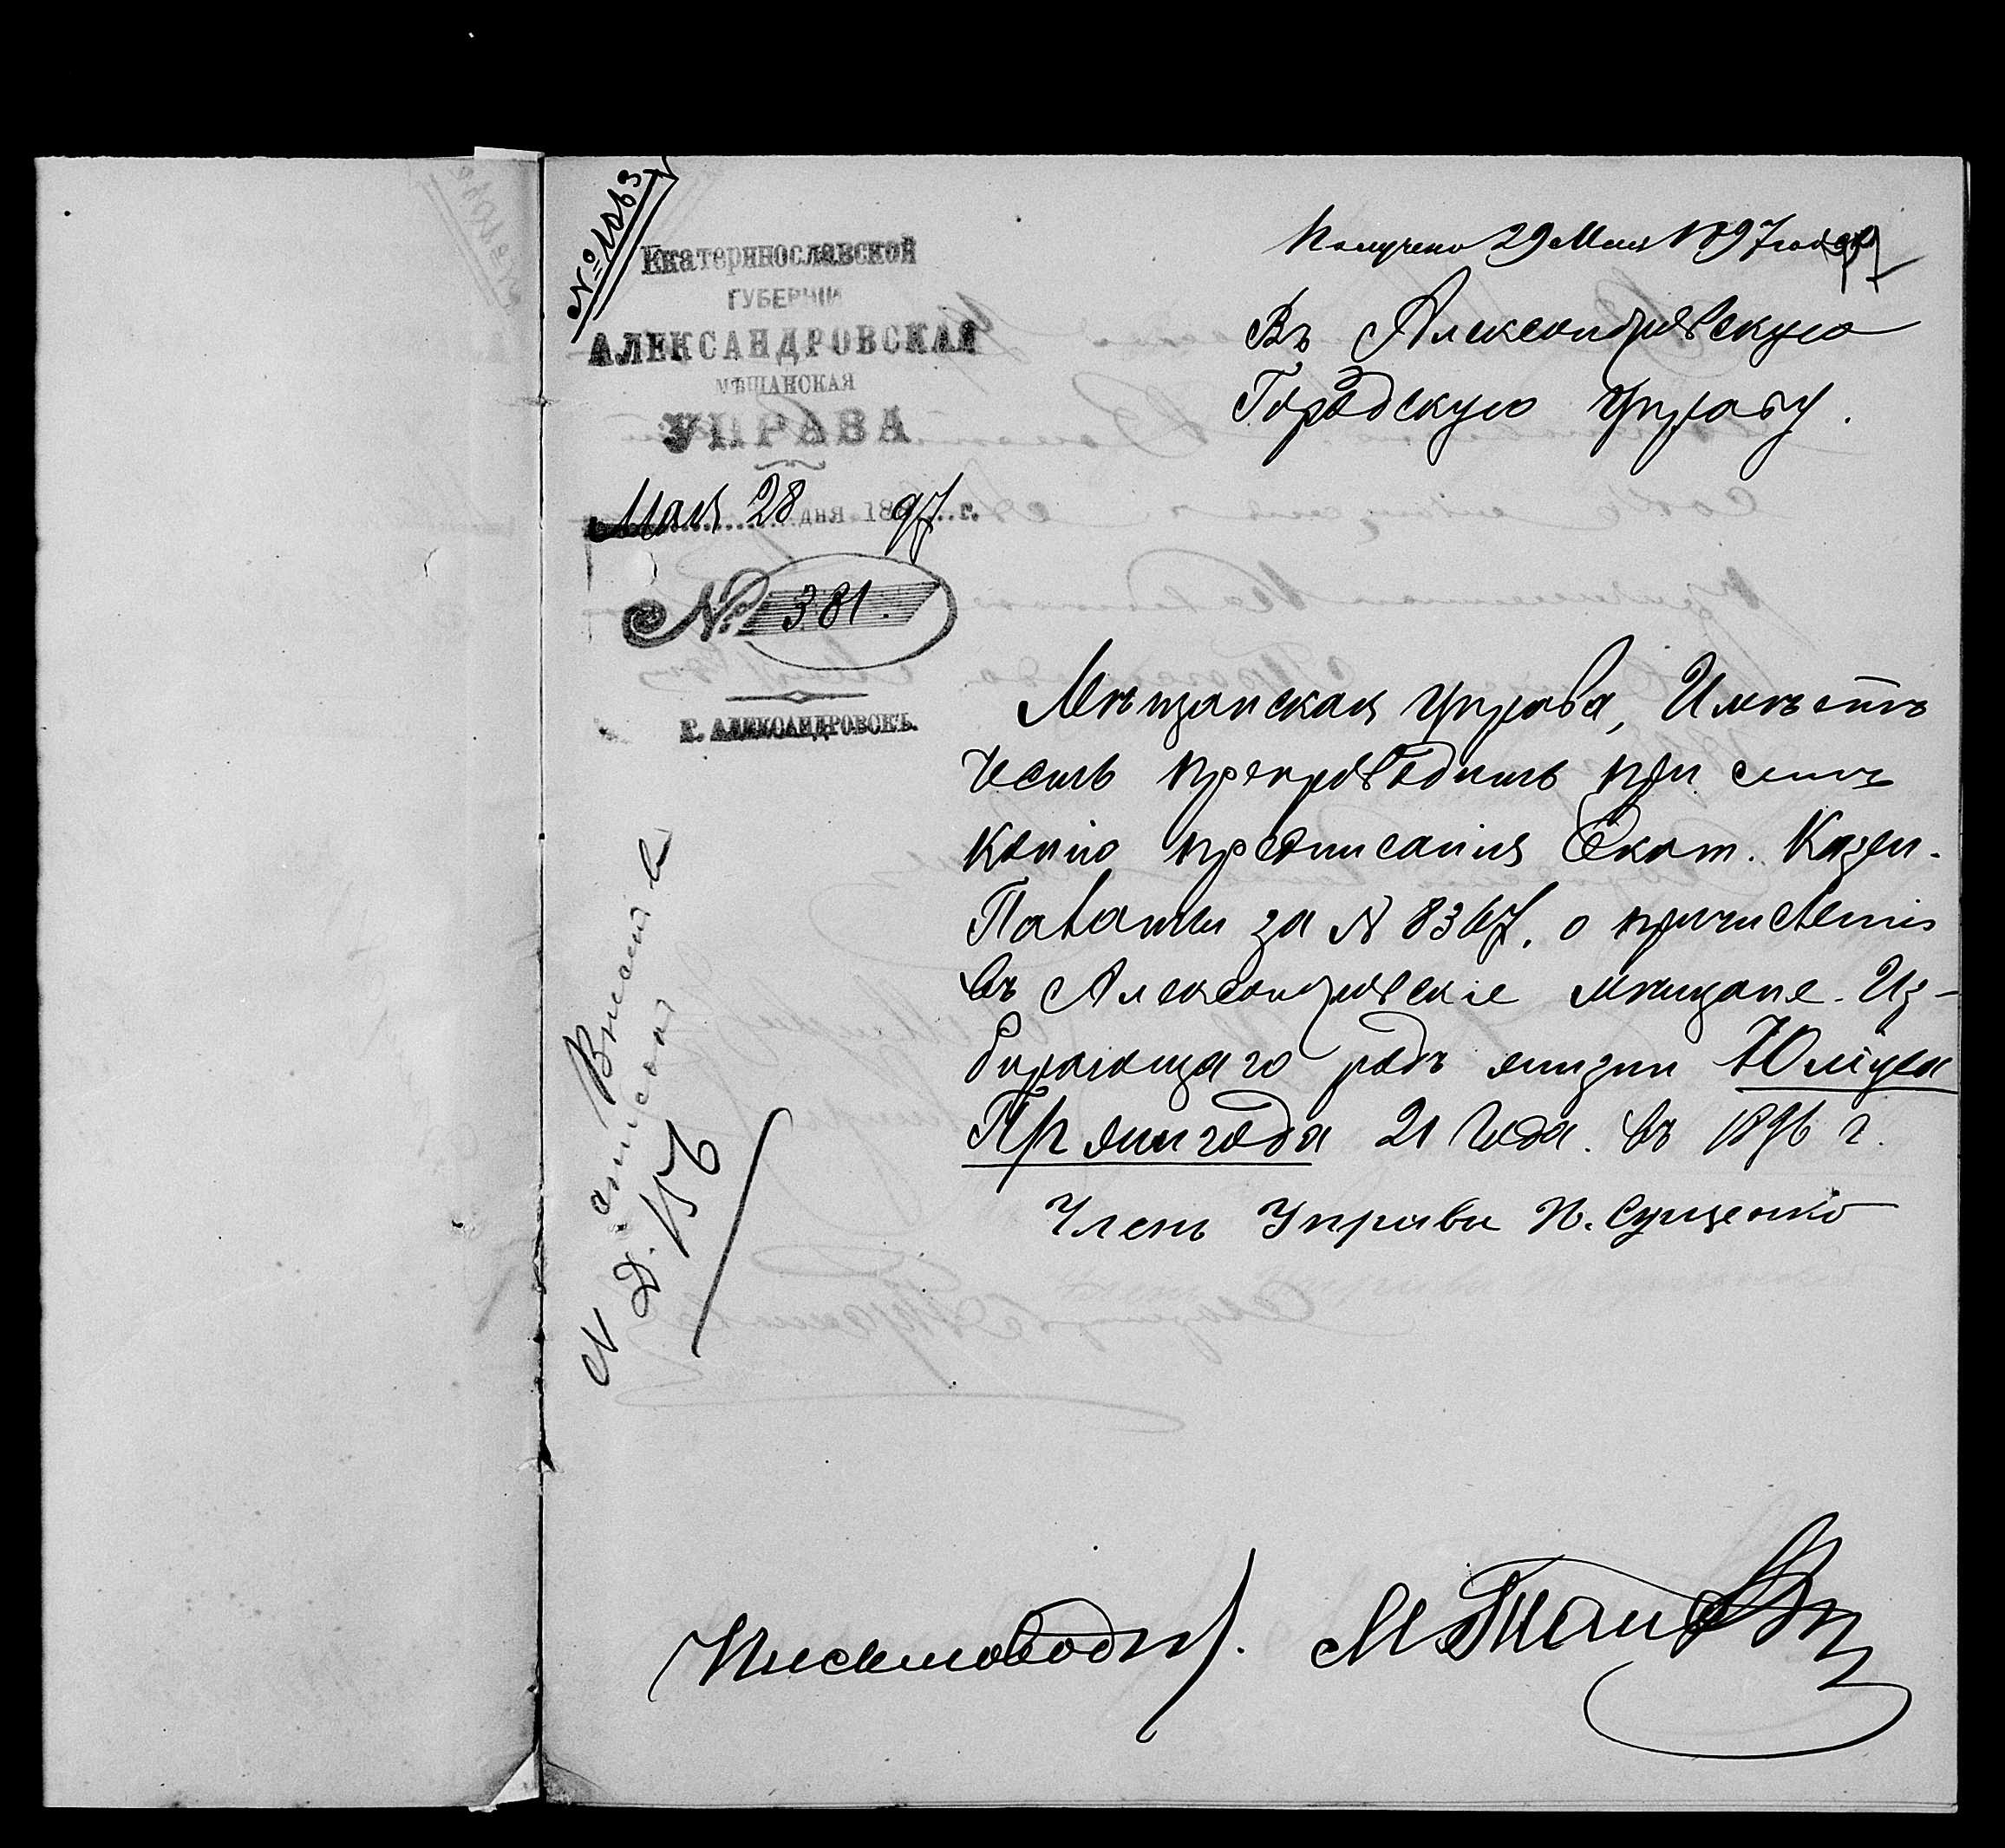 № 1063
Екатеринославской
ГУБЕРНІИ
АЛЕКСАНДРОВСКАЯ
МѢЩАНСКАЯ
УПРАВА
Мая 28 дня 1897 г.
№ 381.
Г. АЛЕКСАНДРОВСКЪ.
Получено 29 Мая 1897 года
Въ Александровскую
Городскую Управу.
Мѣщанская Управа, Имѣетъ
честь препроводить при семъ
копію предписанія Екат. Казен.
Палаты за N 8367, о причисленіи
въ Александровскіе мѣщане. Из-
бирающаго родъ жизни
21 года. въ 1896 г.
Членъ Управы П. Сущенко
Внесенъ въ
списокъ
N Д. 156
Письмоводит.